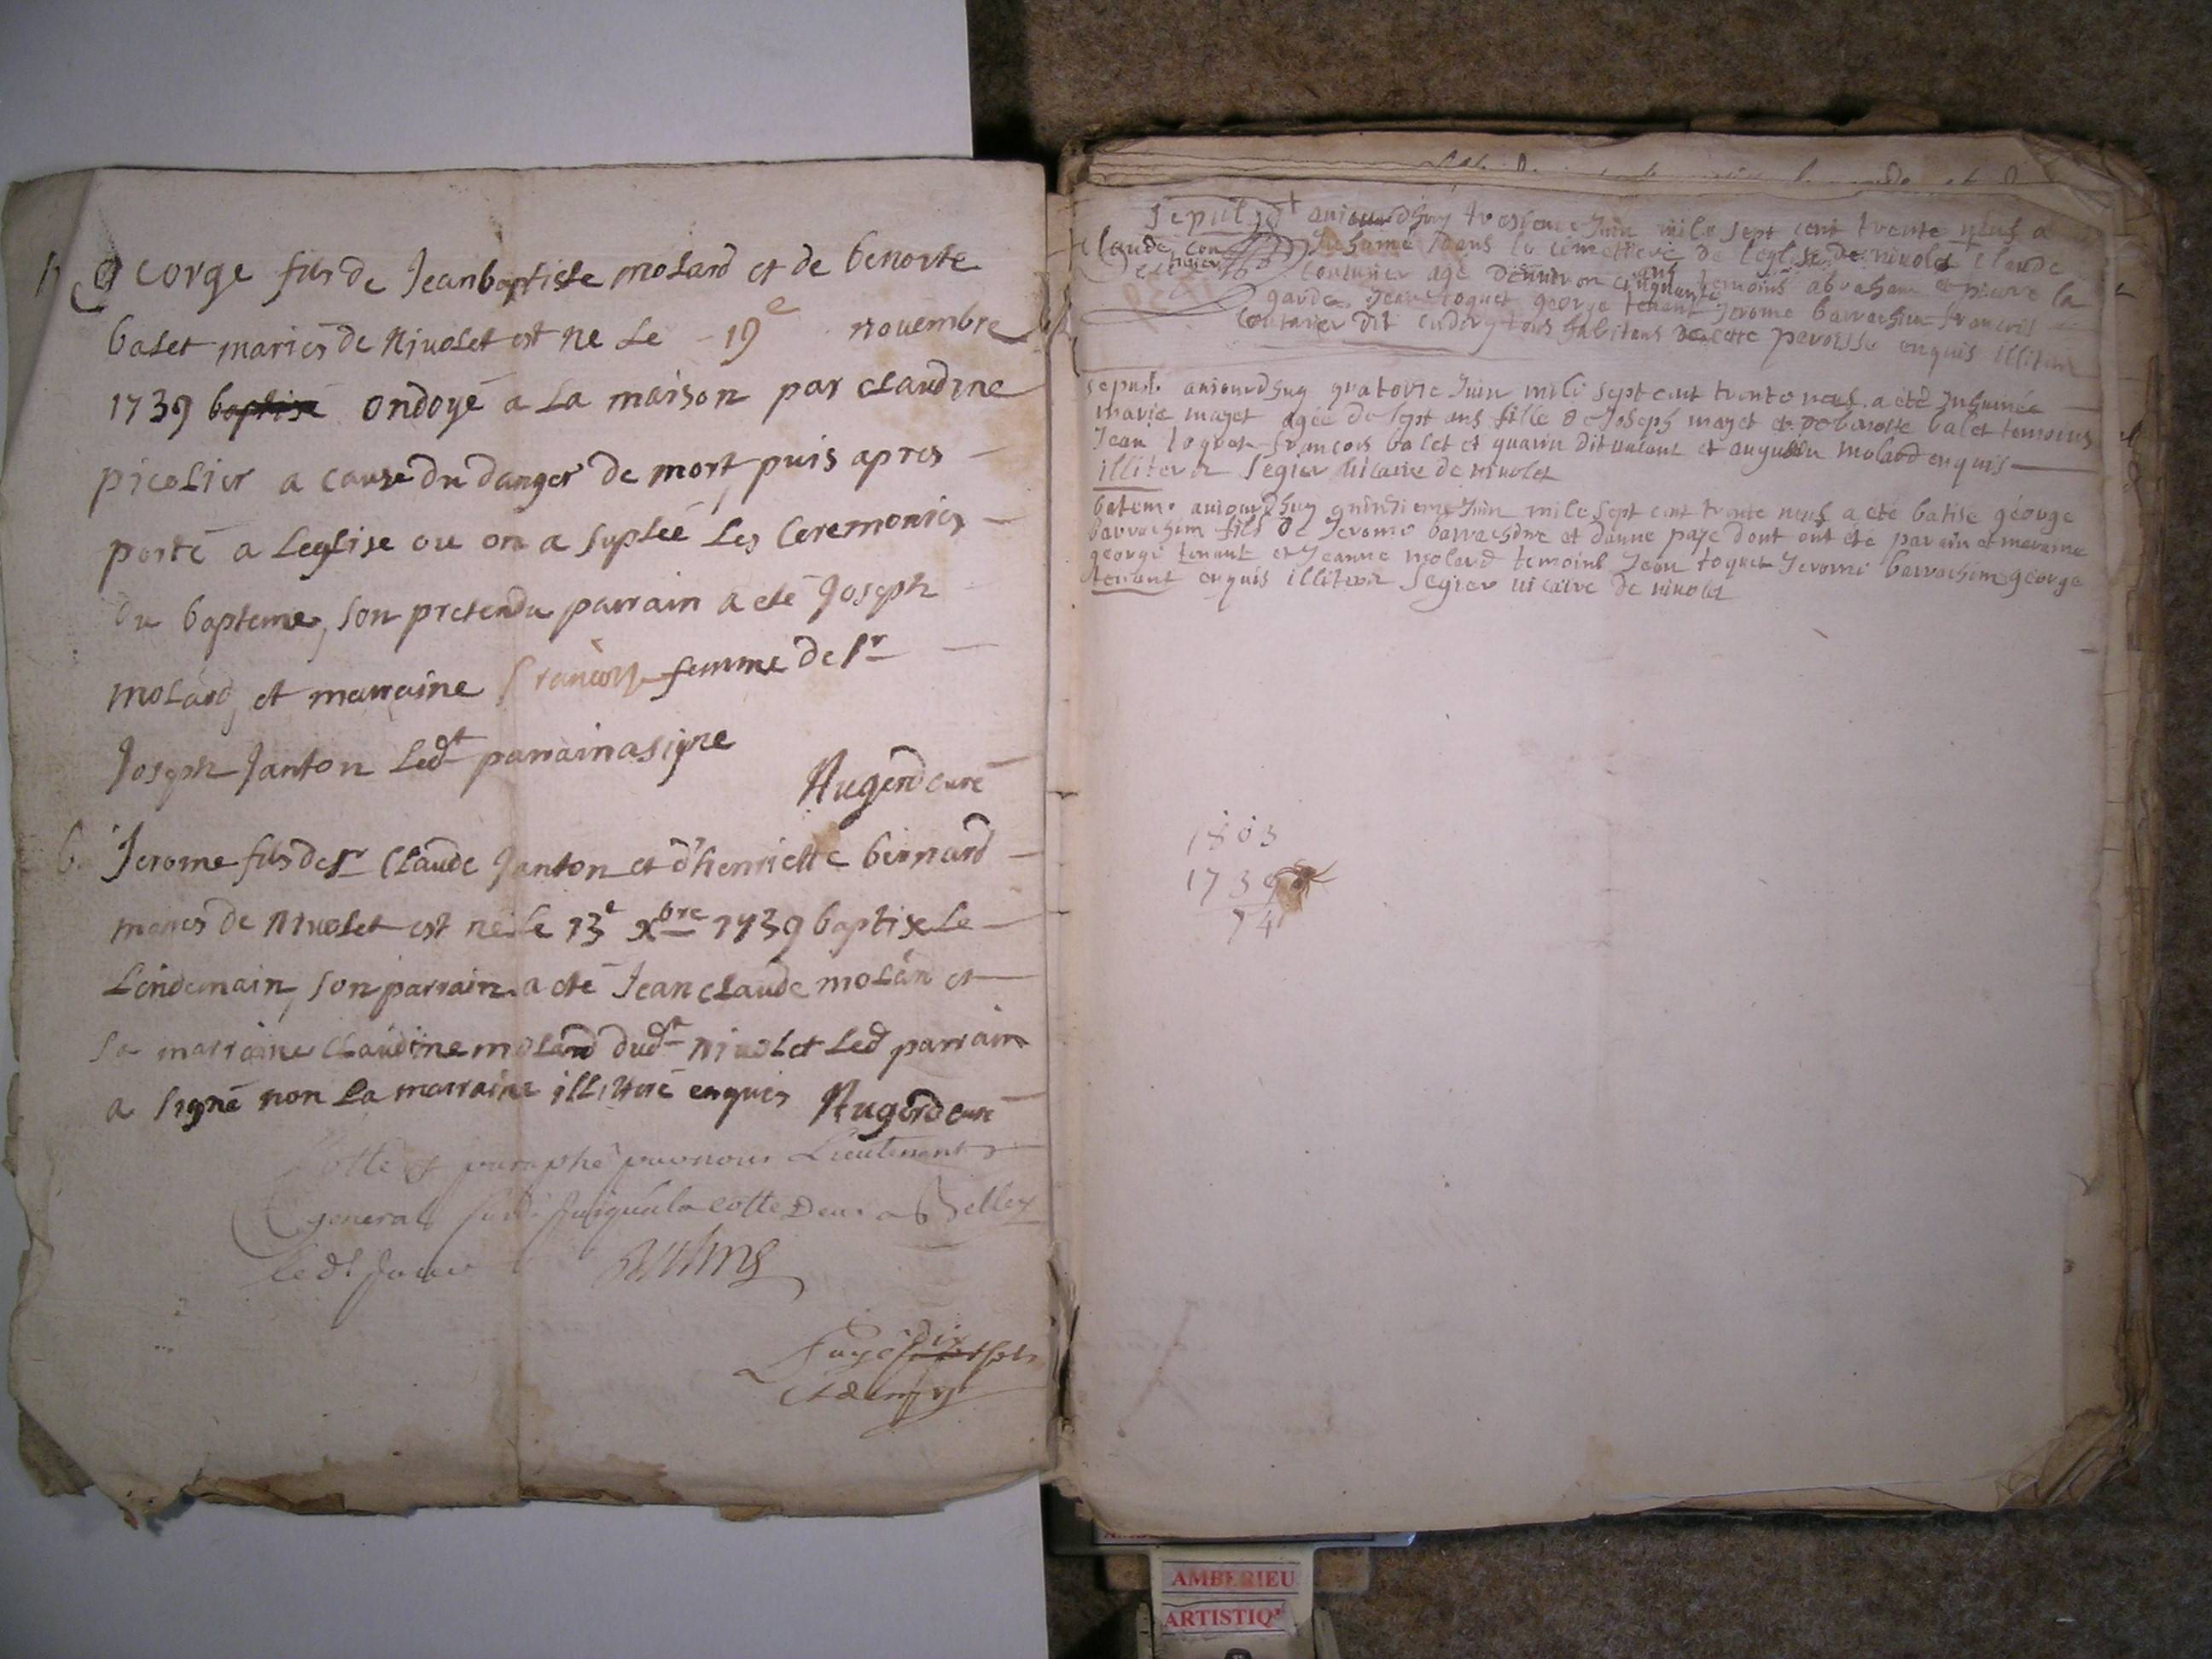 George fils de Jeanbaptiste molard et de benoite
balet mariés de Nivolet est ne Le 19e novembre
1739 baptisé ondoyé a La maison par claudine
picolier a cause du danger de mort, puis apres
porté a Leglise ou on a supleé Les Ceremonies
du bapteme, son pretendu parrain a eté Joseph
molard, et marraine francoise femme de sr
Joseph Janton Ledt parrain a signe
Augerd curé
b. Jerome fils de sr Claude Janton et d'henriette bernard
maries de Nivolet est né Le 13e xbre 1739 baptise Le
Lendemain, son parrain a eté Jean claude molard et
sa marraine Claudine molard dudt Nivolet Led parrain
a signé non La marraine illitteré enquis Augerd curé
Cotte et paraphé par nous Lieutenant
general susd. Jusqua la cotte Deux a Belley
led. Jour
Paye dix sols
sepult aujourdhuy treisieme Juin mile sept cent trente neuf a
Claude cou
turier
Inhumé dans le cimettiere de leglise de nivolet Claude
couturier agé denviron cinquante ans temoins abraham et pierre la
garde Jean toquet george tenant Jerome barrachin francois
couturier dit tous habitans de cette paroisse enquis illiteré
sepul. aujourdhuy quatorze Juin mile sept cent trente neuf a eté Inhumée
marie mayet agée de sept ans fille de Joseph mayet et de benoite balet temoins
Jean toquet francois balet et guarin dit valant et augustin molard enquis
illiteré segier vicaire de nivolet
batem. aujourdhuy quinsieme Juin mile sept cent trente neuf a eté batisé george
barrachim fils de Jerome barrachim et danne paje dont ont éte parain et maraine
george tenant et Jeanne molard temoins Jean toquet Jerome barrachim george
tenant enquis illiteré segier vicaire de nivolet
1803
1739
74
AMBERIEU
ARTISTIQ